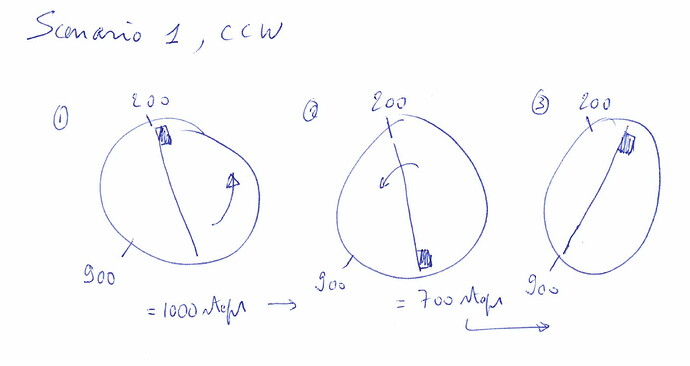 Scenario 1, CCW
① 200 ② 200 ③ 200
900 900 900
= 1000 steps → = 700 steps